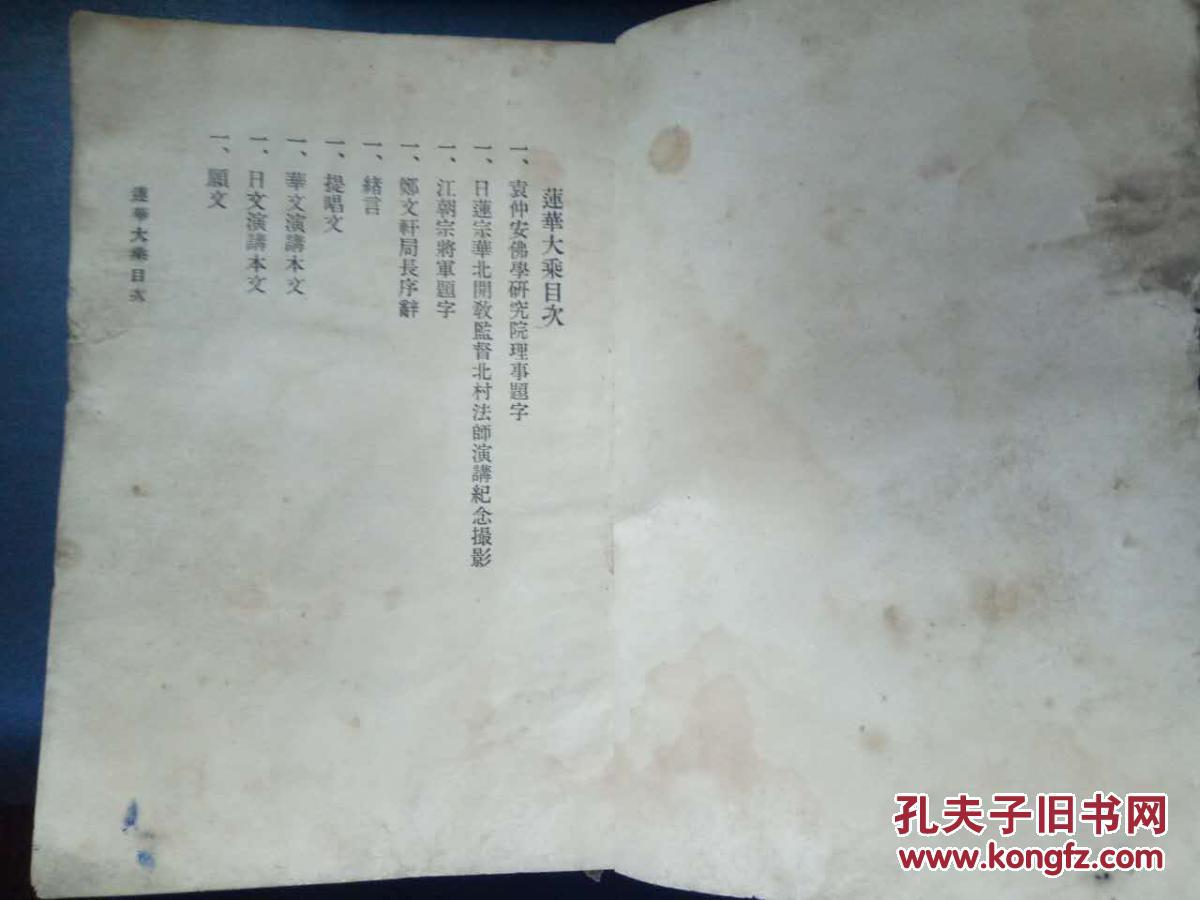 蓮華大乘目次
一、袁仲安佛學研究院理事題字
一、日蓮宗華北開教監督北村法師演講紀念撮影
一、江朝宗將軍題字
一、鄭文軒局長序辭
一、緒言
一、提唱文
一、華文演講本文
一、日文演講本文
一、願文
蓮華大乘目次
孔夫子旧书网
www.kongfz.com